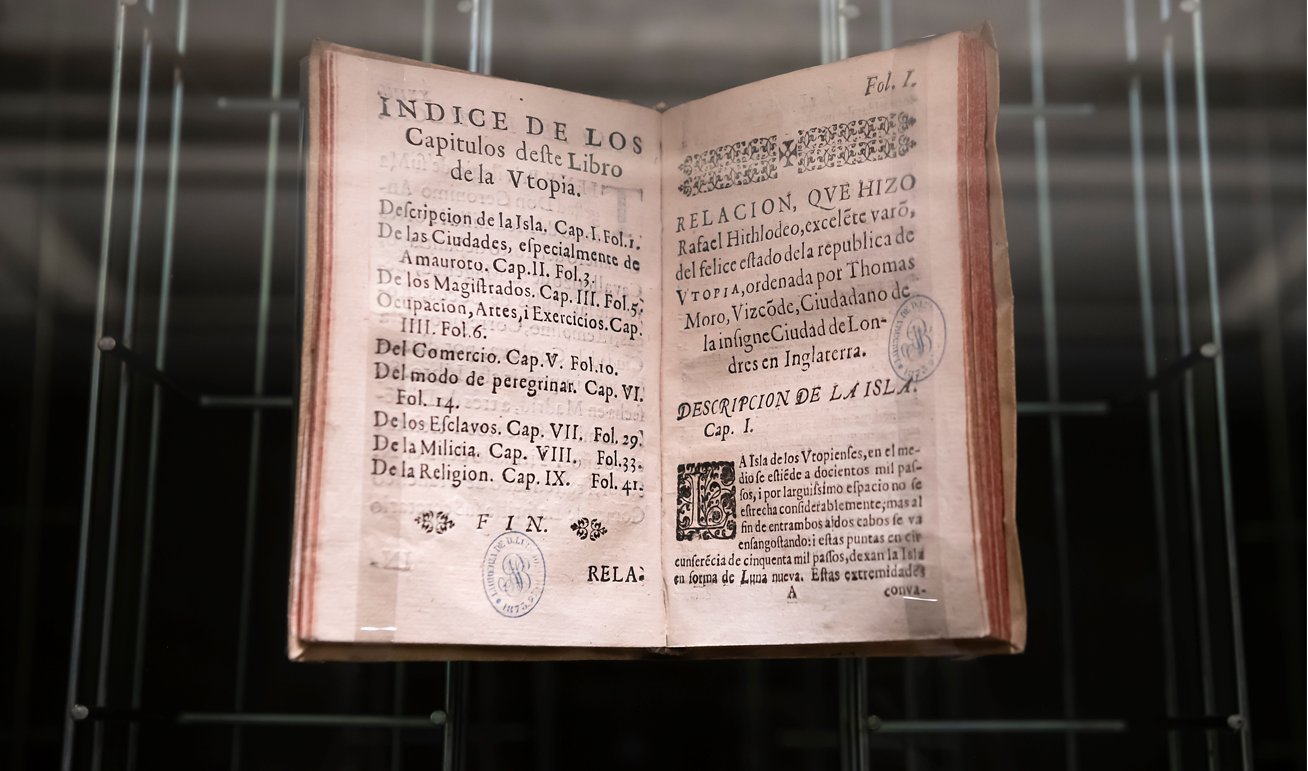 INDICE DE LOS
Capitulos deſte Libro
de la Vtopia.
Deſcripcion de la Isla. Cap. I. Fol. 1.
De las Ciudades, eſpecialmente de
Amauroto. Cap. II. Fol. 3.
De los Magiſtrados. Cap. III. Fol. 5.
Ocupacion, Artes, i Exercicios. Cap.
IIII. Fol. 6.
Del Comercio. Cap. V. Fol. 10.
Del modo de peregrinar. Cap. VI.
Fol. 14.
De los Eſclavos. Cap. VII. Fol. 29.
De la Milicia. Cap. VIII. Fol. 33.
De la Religion. Cap. IX. Fol. 41.
FIN.
RELA-
Fol. I.
RELACION, QVE HIZO
Rafael Hithlodeo, excelẽte varõ,
del felice eſtado dela republica de
VTOPIA, ordenada por Thomas
Moro, Vizcõde, Ciudadano de
la inſigne Ciudad de Lon-
dres en Inglaterra.
DESCRIPCION DE LA ISLA.
Cap. I.
LA Isla de los Vtopienſes, en el me-
dio ſe eſtiẽde a docientos mil paſ-
ſos, i por larguiſsimo eſpacio no ſe
eſtrecha conſiderablemente; mas al
fin de entrambos aldos cabos ſe va
enſangoſtando: i eſtas puntas en cir
cunferẽcia de cinquenta mil paſſos, dexan la Isla
en forma de Luna nueva. Eſtas extremidades
A
conva-